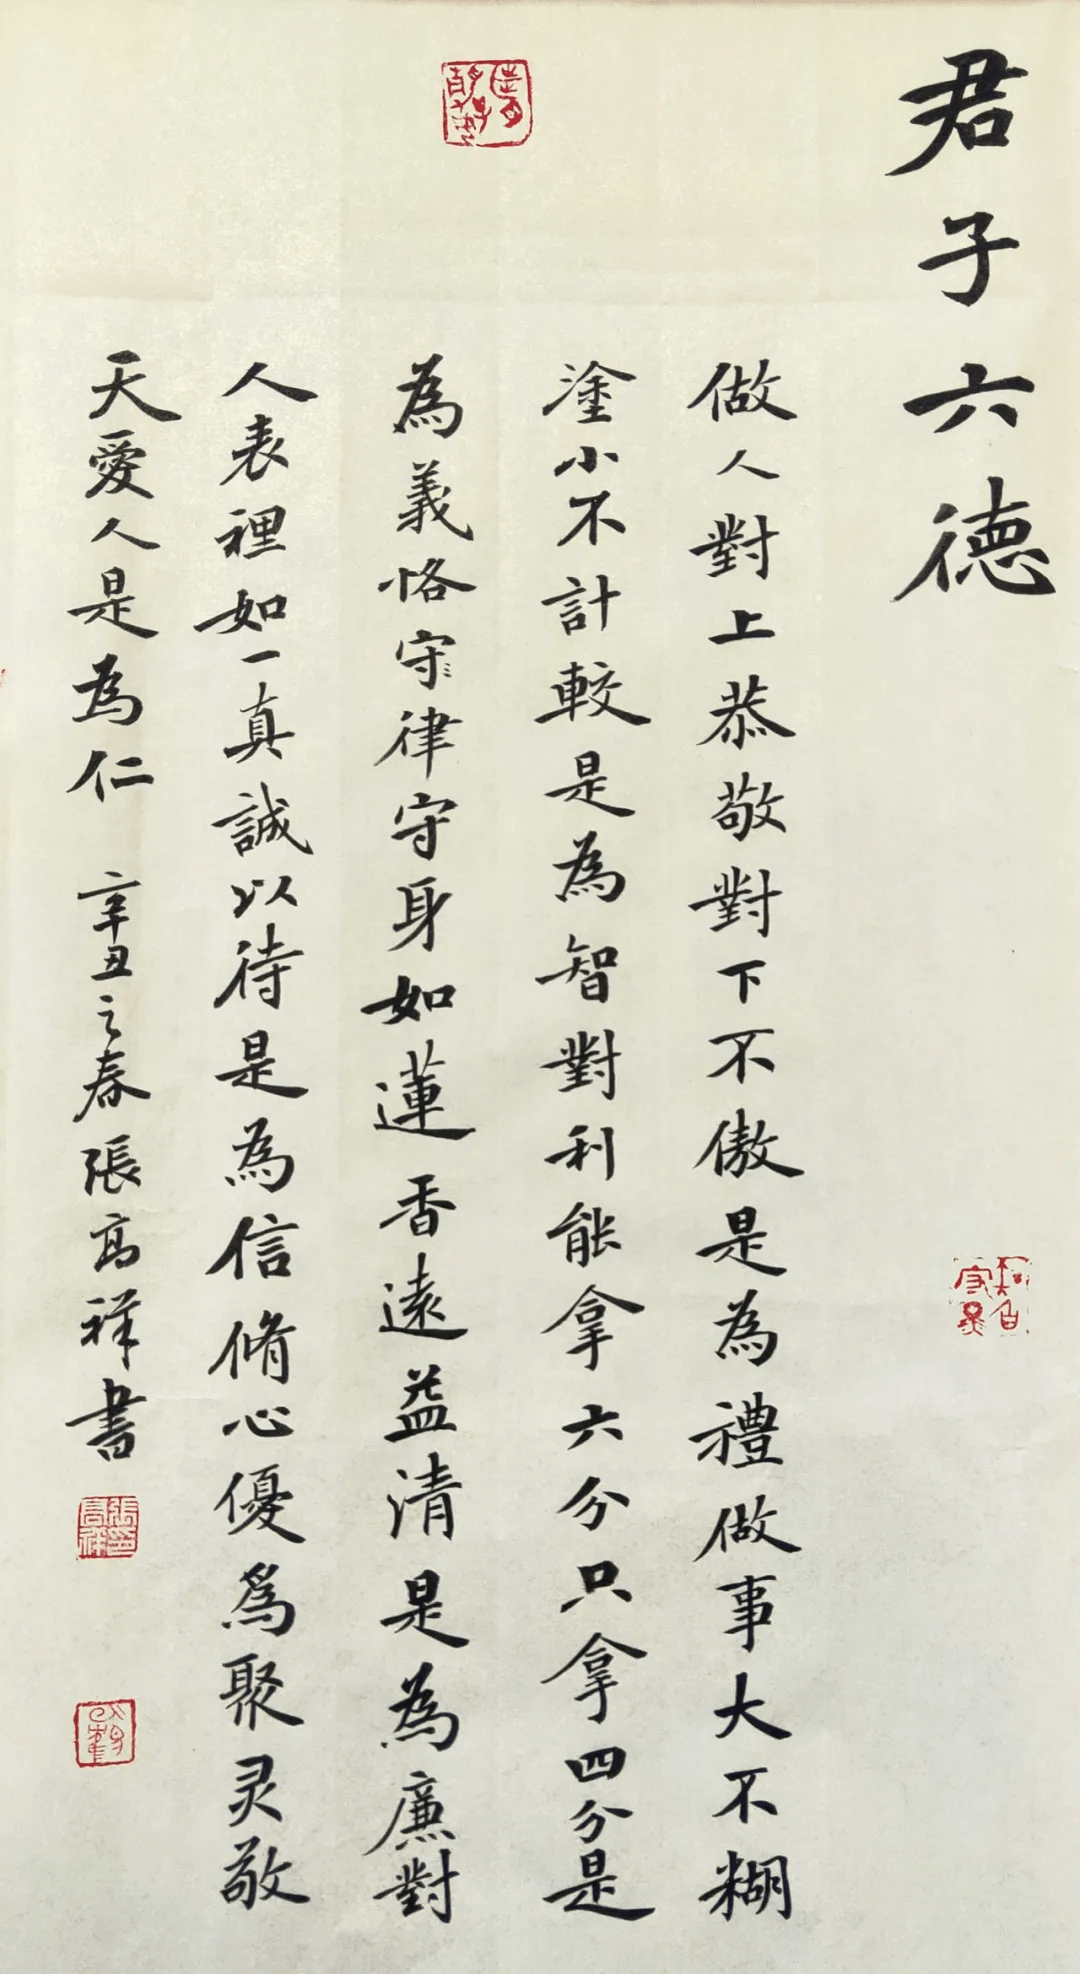 君子六德
做人對上恭敬對下不傲是為禮做事大不糊
塗小不計較是為智對利能拿六分只拿四分是
為義恪守律守身如蓮香遠益清是為廉對
人表裡如一真誠以待是為信脩心優爲聚灵敬
天愛人是為仁 辛丑之春張高祥書
張高祥印